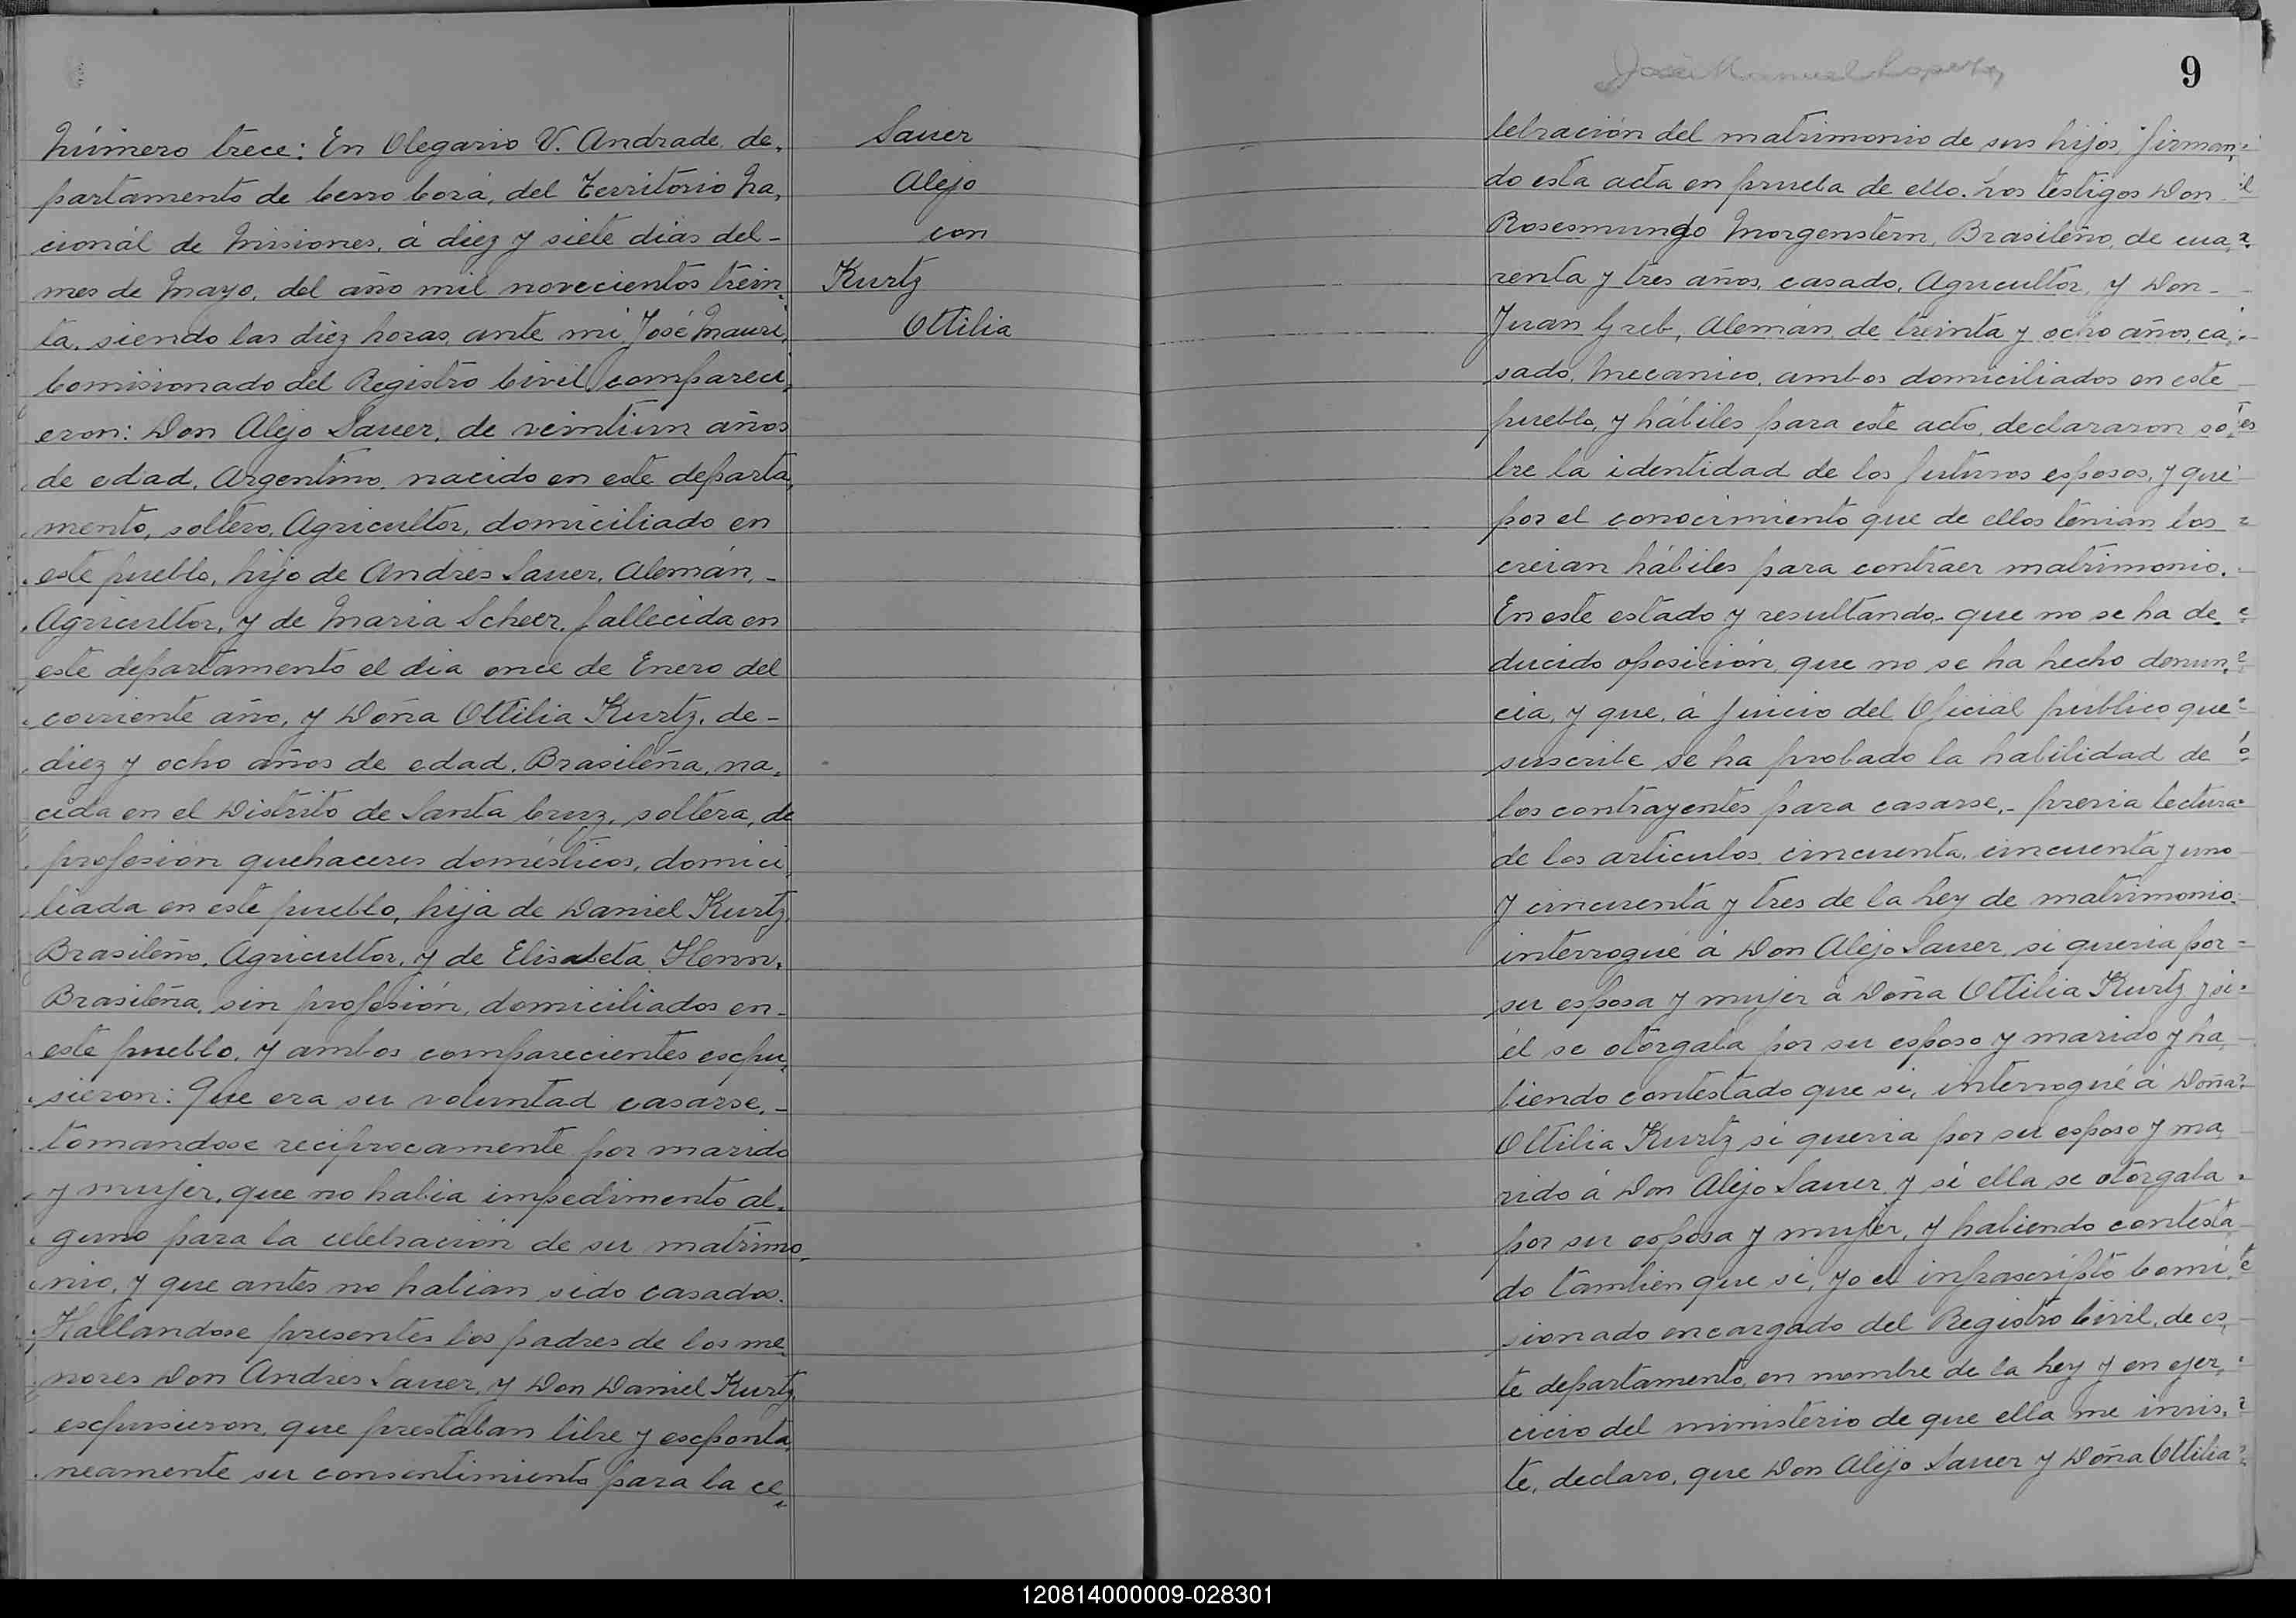 Número trece: En Olegario V. Andrade, de,
partamento de Cerro Corá, del Territorio Na,
cionál de Misiones, á diez y siete dias del -
mes de Mayo, del año mil novecientos trein,
ta, siendo las diez horas, ante mi José Mauri,
Comisionado del Registro Civil, compareci,
eron: Don Alejo Sauer, de veintiun años
de edad, Argentino, nacido en este departa,
mento, soltero, Agricultor, domiciliado en
este pueblo, hijo de Andrés Sauer, Alemán, -
Agricultor, y de Maria Scheer, fallecida en
este departamento el dia once de Enero del
corriente año, y Doña Ottilia Kurtz, de -
diez y ocho años de edad, Brasileña, na,
cida en el Distrito de Santa Cruz, soltera, de
profesión quehaceres domésticos, domici,
liada en este pueblo, hija de Daniel Kurtz,
Brasileño, Agricultor, y de Elisabeta Henn,
Brasileña, sin profesión, domiciliados en -
este pueblo, y ambos comparecientes escpu,
sieron: Que era su voluntad casarse, -
tomandose reciprocamente por marido
y mujer, que no habia impedimento al,
guno para la celebración de su matrimo,
nio, y que antes no habian sido casados.
Hallandose presentes los padres de los me,
nores Don Andrés Sauer, y Don Daniel Kurtz,
escpusieron, que prestaban libre y escponta,
neamente su consentimiento para la ce,
Sauer
Alejo
con
Kurtz
Ottilia
José Manuel
9
lebración del matrimonio de sus hijos, firman,
do esta acta en prueba de ello. Los testigos Don
Rosesmundo Morgenstern, Brasileño, de cua,
renta y tres años, casado, Agricultor, y Don -
Juan Greb, Alemán, de treinta y ocho años, ca,
sado, Mecánico, ambos domiciliados en este
pueblo, y hábiles para este acto, declararon so,
bre la identidad de los futuros esposos, y que
por el conocimiento que de ellos tenian los
creian hábiles para contraer matrimonio.
En este estado y resultando, que no se ha de,
ducido oposición, que no se ha hecho denun,
cia, y que, á juicio del Oficial público que
suscribe se ha probado la habilidad de
los contrayentes para casarse, - previa lectura
de los articulos, cincuenta, cincuenta y uno
y cincuenta y tres de la Ley de matrimonio
interrogué á Don Alejo Sauer, si queria por -
su esposa y mujer á Doña Ottilia Kurtz y si
él se otorgaba por su esposo y marido y ha,
biendo contestado que si, interrogué á Doña
Ottilia Kurtz si queria por su esposo y ma,
rido á Don Alejo Sauer y si ella se otorgaba
por su esposa y mujer, y habiendo contesta,
do tambien que si, yo el infrascripto Comi,
sionado encargado del Registro Civil, de es,
te departamento, en nombre de la Ley y en ejer,
cicio del ministerio de que ella me invis,
te, declaro, que Don Alejo Sauer y Doña Ottilia
120814000009-028301